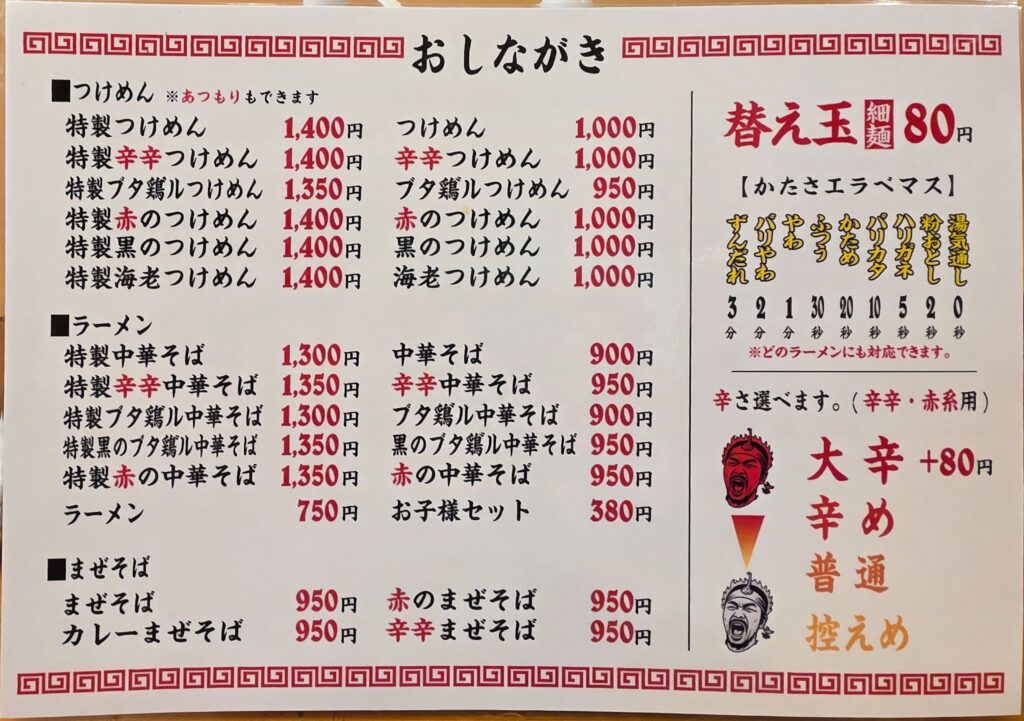 おしながき
■つけめん ※あつもりもできます
特製つけめん 1,400円 つけめん 1,000円
特製辛辛つけめん 1,400円 辛辛つけめん 1,000円
特製ブタ鶏ルつけめん 1,350円 ブタ鶏ルつけめん 950円
特製赤のつけめん 1,400円 赤のつけめん 1,000円
特製黒のつけめん 1,400円 黒のつけめん 1,000円
特製海老つけめん 1,400円 海老つけめん 1,000円
■ラーメン
特製中華そば 1,300円 中華そば 900円
特製辛辛中華そば 1,350円 辛辛中華そば 950円
特製ブタ鶏ル中華そば 1,300円 ブタ鶏ル中華そば 900円
特製黒のブタ鶏ル中華そば 1,350円 黒のブタ鶏ル中華そば 950円
特製赤の中華そば 1,350円 赤の中華そば 950円
ラーメン 750円 お子様セット 380円
■まぜそば
まぜそば 950円 赤のまぜそば 950円
カレーまぜそば 950円 辛辛まぜそば 950円
替え玉 細麺 80円
【かたさエラベマス】
湯気通し 0秒
粉おとし 2秒
ハリガネ 5秒
バリカタ 10秒
かため 20秒
ふつう 30秒
やわ 1分
バリやわ 2分
ずんだれ 3分
※どのラーメンにも対応できます。
辛さ選べます。(辛辛・赤系用)
大辛 +80円
辛め
普通
控えめ